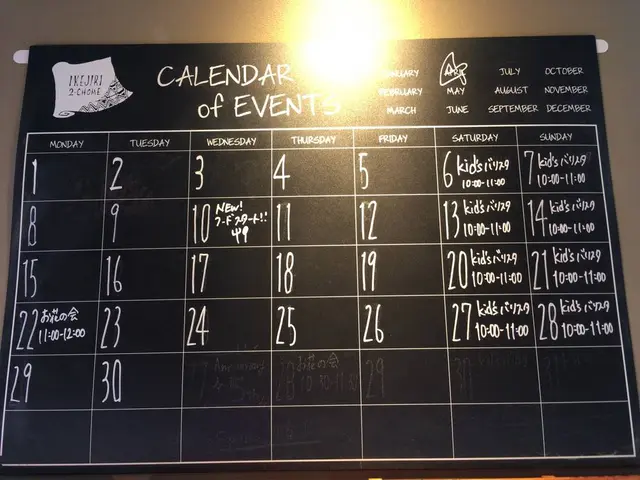 IKEJIRI
2-CHOME
CALENDAR
of EVENTS
JANUARY APRIL JULY OCTOBER
FEBRUARY MAY AUGUST NOVEMBER
MARCH JUNE SEPTEMBER DECEMBER
MONDAY TUESDAY WEDNESDAY THURSDAY FRIDAY SATURDAY SUNDAY
1 2 3 4 5 6 kid'sバリスタ 7 kid'sバリスタ
10:00-11:00 10:00-11:00
8 9 10 NEW! 11 12 13 kid'sバリスタ 14 kid'sバリスタ
フードスタート!!
10:00-11:00 10:00-11:00
15 16 17 18 19 20 kid'sバリスタ 21 kid'sバリスタ
10:00-11:00 10:00-11:00
22 お花の会 23 24 25 26 27 kid'sバリスタ 28 kid'sバリスタ
11:00-12:00 10:00-11:00 10:00-11:00
29 30 28 お花の会 29